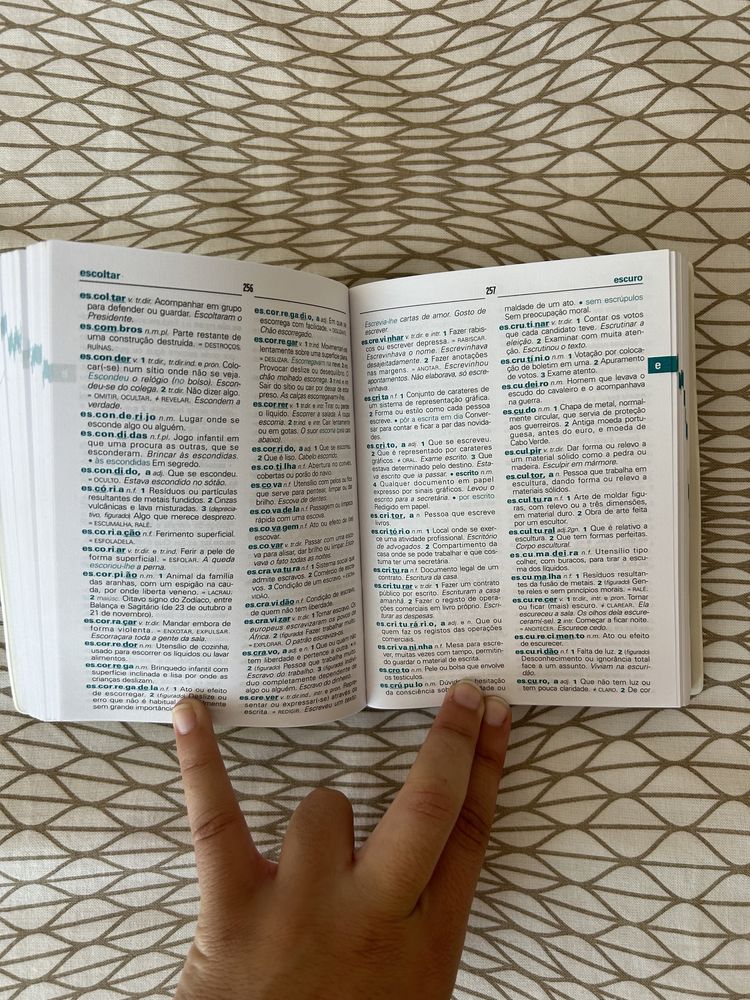 escoltar
256
es.col.tar v. tr.dir. Acompanhar em grupo
para defender ou guardar. Escoltaram o
Presidente.
es.com.bros n.m.pl. Parte restante de
uma construção destruída. = DESTROÇOS,
RUÍNAS.
es.con.der v. tr.dir., tr.dir.ind. e pron. Colo-
car(-se) num sítio onde não se veja.
Escondeu o relógio (no bolso). Escon-
deu-se do colega. 2 tr.dir. Não dizer algo.
= OMITIR, OCULTAR. ≠ REVELAR. Escondem a
verdade.
es.con.de.ri.jo n.m. Lugar onde se
esconde algo ou alguém.
es.con.di.das n.f.pl. Jogo infantil em
que uma procura as outras, que se
esconderam. Brincar às escondidas.
• às escondidas Em segredo.
es.con.di.do, a adj. Que se escondeu.
= OCULTO. Estava escondido no sótão.
es.có.ri.a n.f. 1 Resíduos ou partículas
resultantes de metais fundidos. 2 Cinzas
vulcânicas e lava misturadas. 3 (deprecia-
tivo, figurado) Algo que merece desprezo.
= ESCUMALHA, RALÉ.
es.co.ri.a.ção n.f. Ferimento superficial.
= ESFOLADELA.
es.co.ri.ar v. tr.dir. e tr.ind. Ferir a pele de
forma superficial. = ESFOLAR. A queda
escoriou-lhe a perna.
es.cor.pi.ão n.m. 1 Animal da família
das aranhas, com um espigão na cau-
da, por onde liberta veneno. = LACRAU.
2 maiúsc. Oitavo signo do Zodíaco, entre
Balança e Sagitário (de 23 de outubro a
21 de novembro).
es.cor.ra.çar v. tr.dir. Mandar embora de
forma violenta. = ENXOTAR, EXPULSAR.
Escorraçara toda a gente da sala.
es.cor.re.dor n.m. Utensílio de cozinha,
usado para escorrer os líquidos ou lavar
alimentos.
es.cor.re.ga n.m. Brinquedo infantil com
superfície inclinada e lisa por onde as
crianças deslizam.
es.cor.re.ga.de.la n.f. 1 Ato ou efeito
de escorregar. 2 (figurado) Deslize ou
erro que não é habitual,
sem grande importância
es.cor.re.ga.di.o, a adj. Em que se
escorrega com facilidade.
Chão escorregadio.
es.cor.re.gar v. 1 tr.ind. Movimentar-se
lentamente sobre uma superfície plana.
= DESLIZAR. Escorregavam na neve. 2
Provocar deslize ou desequilíbrio. O
chão molhado escorrega. 3
Sair do sítio ou cair por deixar de estar
preso. As calças escorregavam-lhe.
es.cor.rer v. 1 tr.dir. e ind. Tirar ou perder
o líquido. Escorrer a salada. A
escorreu. 2 tr.ind. e intr. Cair lentamente
ou em gotas. O suor escorria (pelo corpo
abaixo).
es.cor.ri.do, a adj. 1 Que se escorreu.
2 Que é liso. Cabelo escorrido.
es.co.ti.lha n.f. Abertura no convés,
cobertas ou porão do navio.
es.co.va n.f. Utensílio com pelos fixos
que serve para pentear, limpar ou dar
brilho. Escova de dentes.
es.co.va.de.la n.f. Passagem ou limpeza
rápida com uma escova.
es.co.va.gem n.f. Ato ou efeito de
escovar.
es.co.var v. tr.dir. Passar com uma esco-
va para alisar, dar brilho ou limpar. Esco-
vava o fato todas as noites.
es.cra.va.tu.ra n.f. 1 Sistema social que
admite escravos. 2 Comércio de escra-
vos. 3 Condição de um escravo. = ESCRA-
VIDÃO.
es.cra.vi.dão n.f. Condição de escravo,
de quem não tem liberdade.
es.cra.vi.zar v. tr.dir. 1 Tornar escravo. Os
europeus escravizaram os povos de
África. 2 (figurado) Fazer trabalhar muito.
= EXPLORAR. O patrão escraviza-os.
es.cra.vo, a adj. e n. 1 Que ou quem não
tem liberdade e pertence a outra pessoa.
2 (figurado) Pessoa que trabalha muito.
Escravo do trabalho. 3 (figurado) Indiví-
duo completamente dependente de
algo ou alguém. Escravo do dinheiro.
es.cre.ver v. tr.dir., tr.dir.ind., intr. e pron. Repre-
sentar ou expressar(-se) através da
escrita. = REDIGIR. Escreveu um texto.
257
escuro
Escrevia-lhe cartas de amor. Gosto de
escrever.
es.cre.vi.nhar v. tr.dir. e intr. 1 Fazer rabis-
cos ou escrever depressa. = RABISCAR.
Escrevinhava o nome. Escrevinhava
desajeitadamente. 2 Fazer anotações
nas margens. = ANOTAR. Escrevinhou
apontamentos. Não elaborava, só escre-
vinhava.
es.cri.ta n.f. 1 Conjunto de carateres de
um sistema de representação gráfica.
2 Forma ou estilo como cada pessoa
escreve. • pôr a escrita em dia Conver-
sar para contar e ficar a par das novida-
des.
es.cri.to, a adj. 1 Que se escreveu.
2 Que é representado por carateres
gráficos. ≠ ORAL. Exame escrito. 3 Que
estava determinado pelo destino. Esta-
va escrito que ia passar. • escrito n.m.
4 Qualquer documento em papel
expresso por sinais gráficos. Levou o
escrito para a secretária. • por escrito
Redigido em papel.
es.cri.tor, a n. Pessoa que escreve
livros.
es.cri.tó.rio n.m. 1 Local onde se exer-
ce uma atividade profissional. Escritório
de advogados. 2 Compartimento da
casa onde se pode trabalhar e que cos-
tuma ter uma secretária.
es.cri.tu.ra n.f. Documento legal de um
contrato. Escritura da casa.
es.cri.tu.rar v. tr.dir. 1 Fazer um contrato
público por escrito. Escrituram a casa
amanhã. 2 Fazer o registo de opera-
ções comerciais em livro próprio. Escri-
turar as despesas.
es.cri.tu.rá.ri.o, a adj. e n. Que ou
quem faz os registos das operações
comerciais.
es.cri.va.ni.nha n.f. Mesa para escre-
ver, muitas vezes com tampo, permitin-
do guardar o material de escrita.
es.cro.to n.m. Pele ou bolsa que envolve
os testículos.
es.crú.pu.lo n.m. Dúvida, hesitação
da consciência sobre ou
maldade de um ato. • sem escrúpulos
Sem preocupação moral.
es.cru.ti.nar v. tr.dir. 1 Contar os votos
que cada candidato teve. Escrutinar a
eleição. 2 Examinar com muita aten-
ção. Escrutinou o texto.
es.cru.tí.ni.o n.m. 1 Votação por coloca-
ção de boletim em urna. 2 Apuramento
de votos. 3 Exame atento.
es.cu.dei.ro n.m. Homem que levava o
escudo do cavaleiro e o acompanhava
na guerra.
es.cu.do n.m. 1 Chapa de metal, normal-
mente circular, que servia de proteção
aos guerreiros. 2 Antiga moeda portu-
guesa, antes do euro, e moeda de
Cabo Verde.
es.cul.pir v. tr.dir. Dar forma ou relevo a
um material sólido como a pedra ou
madeira. Esculpir em mármore.
es.cul.tor, a n. Pessoa que trabalha em
escultura, dando forma ou relevo a
materiais sólidos.
es.cul.tu.ra n.f. 1 Arte de moldar figu-
ras, com relevo ou a três dimensões,
em material duro. 2 Obra de arte feita
por um escultor.
es.cul.tu.ral adj.2gn. 1 Que é relativo a
escultura. 2 Que tem formas perfeitas.
Corpo escultural.
es.cu.ma.dei.ra n.f. Utensílio tipo
colher, com buracos, para tirar a escu-
ma dos líquidos.
es.cu.ma.lha n.f. 1 Resíduos resultan-
tes da fusão de metais. 2 (figurado) Gen-
te reles e sem princípios morais. = RALÉ.
es.cu.re.cer v. 1 tr.dir., intr. e pron. Tornar
ou ficar (mais) escuro. ≠ CLAREAR. Ela
escureceu a sala. Os olhos dela escure-
ceram(-se). 2 intr. Começar a ficar noite.
= ANOITECER. Escurece cedo.
es.cu.re.ci.men.to n.m. Ato ou efeito
de escurecer.
es.cu.ri.dão n.f. 1 Falta de luz. 2 (figurado)
Desconhecimento ou ignorância total
face a um assunto. Vivem na escuri-
dão.
es.cu.ro, a adj. 1 Que não tem luz ou
tem pouca claridade. ≠ CLARO. 2 De cor
e